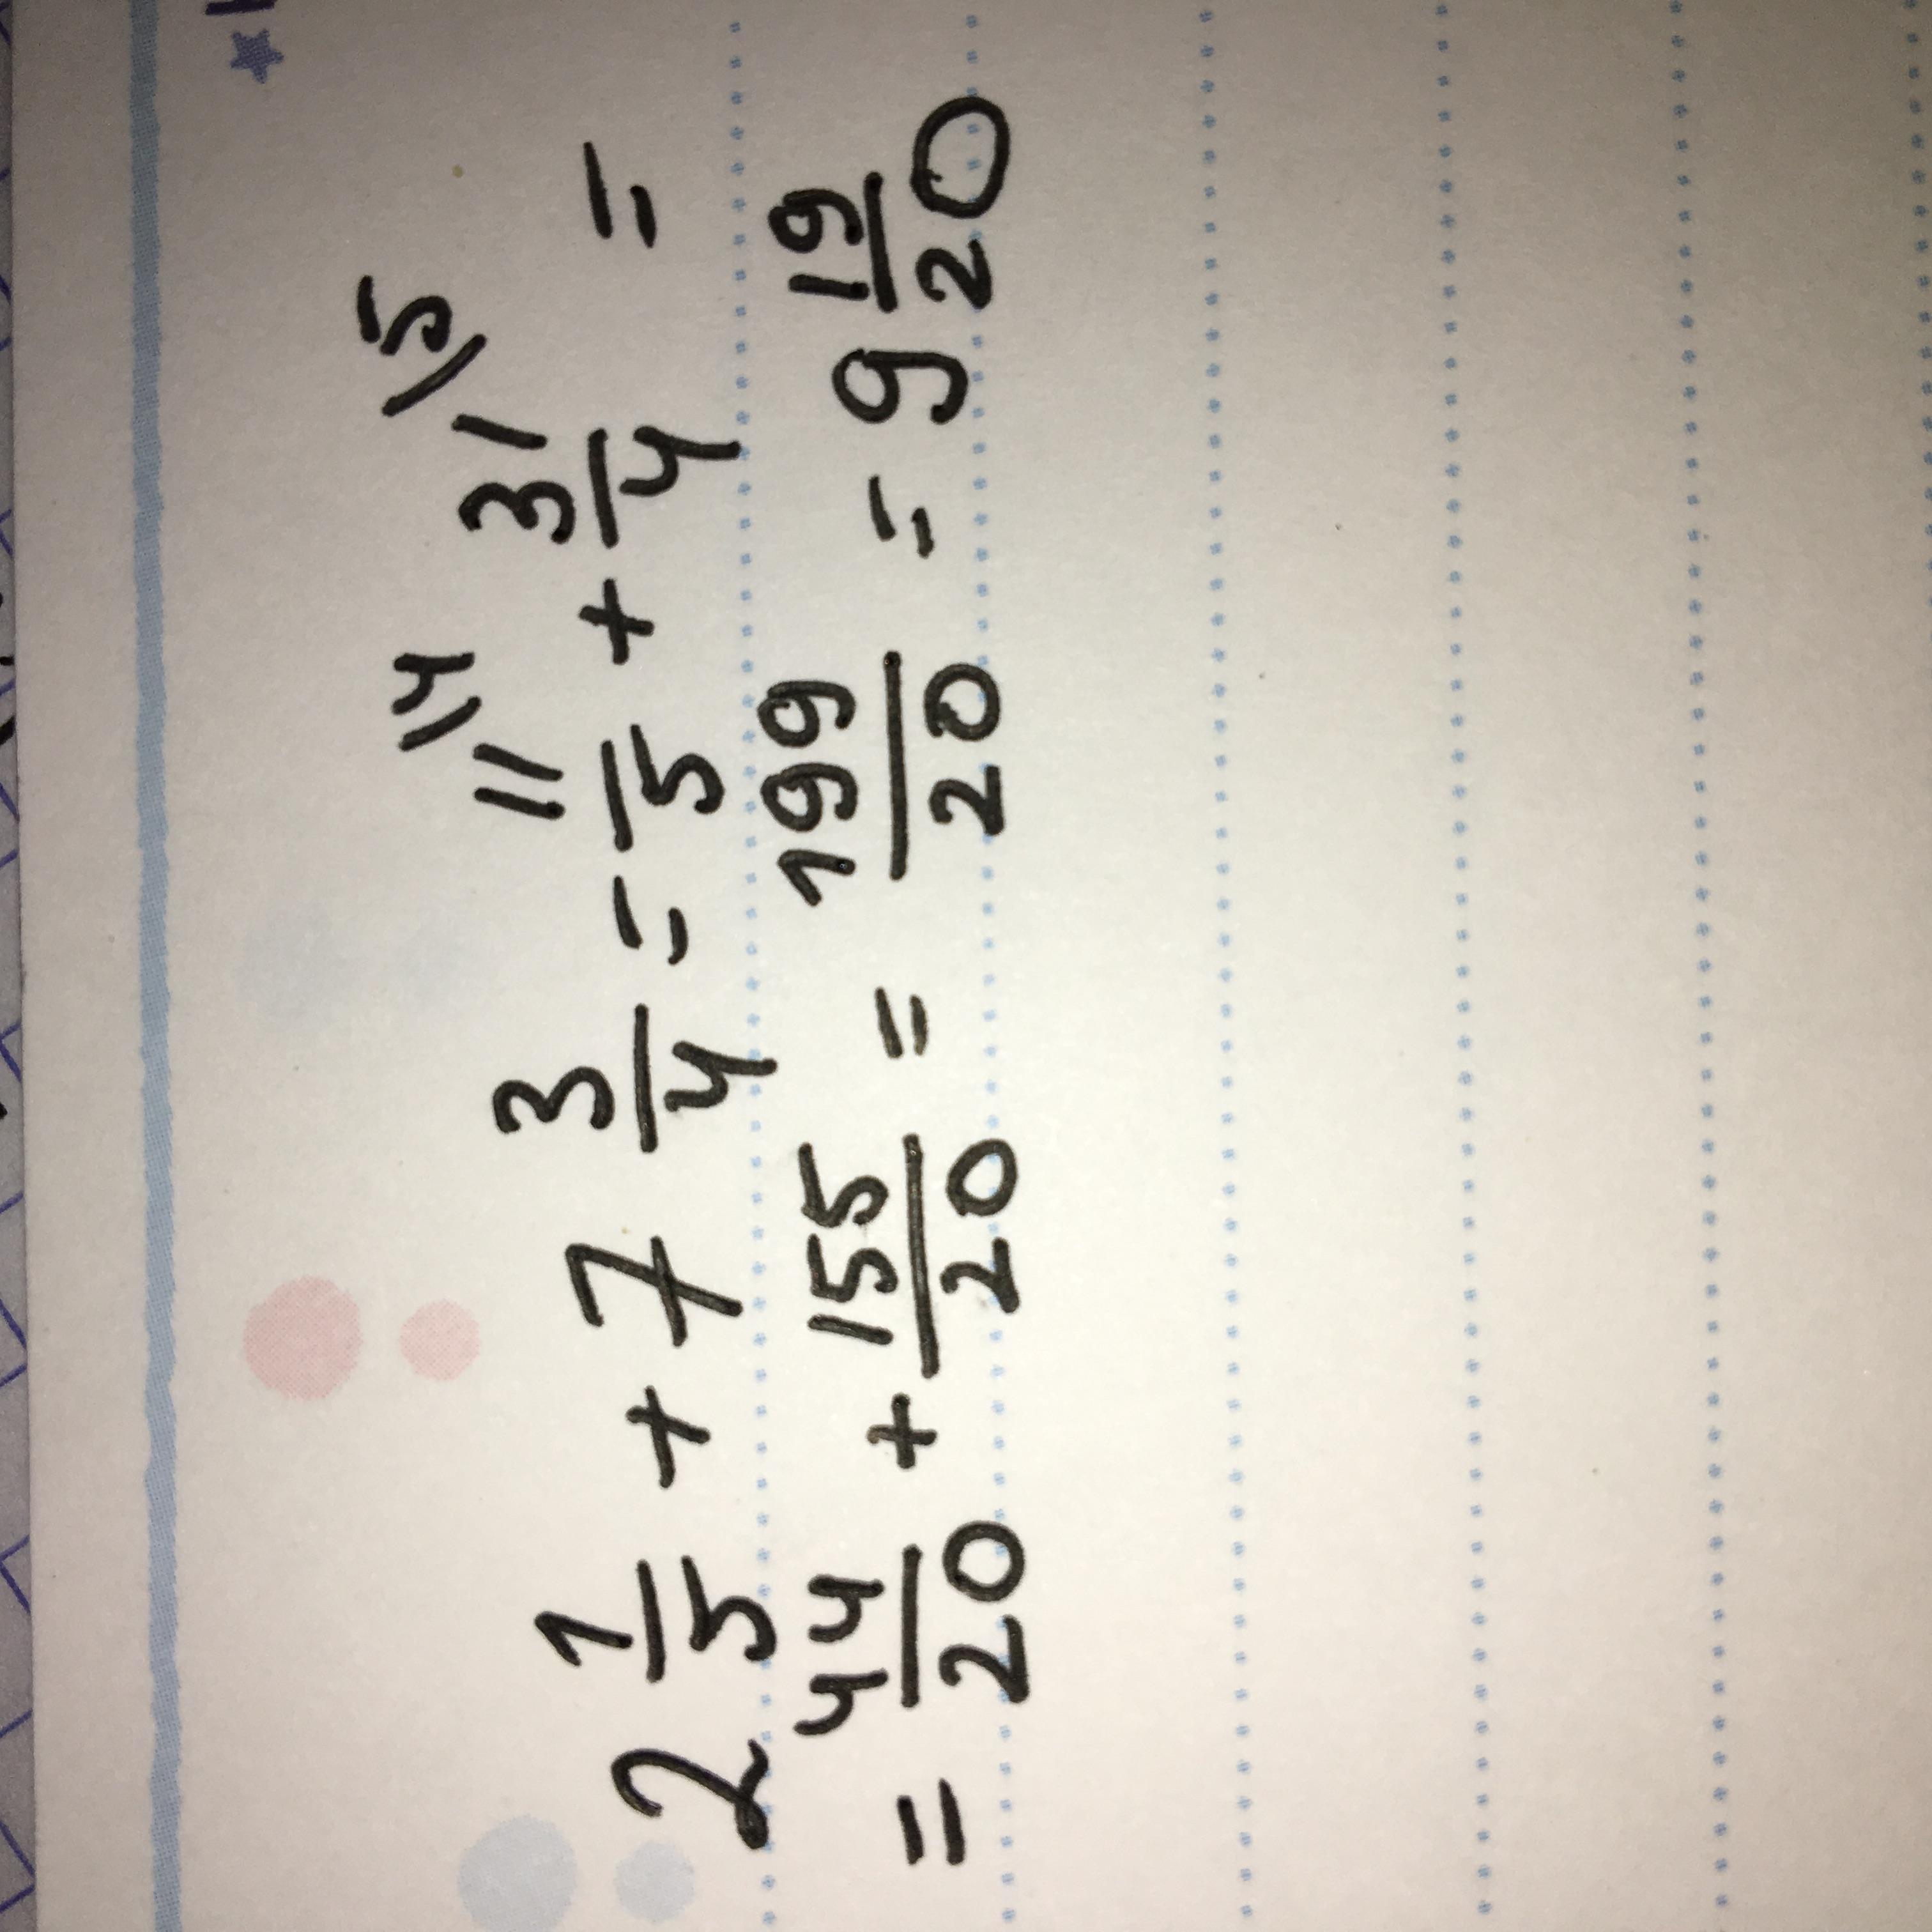 2 1/5 + 7 3/4 = 11\4/5 + 31\5/4 =
= 44/20 + 155/20 = 199/20 = 9 19/20